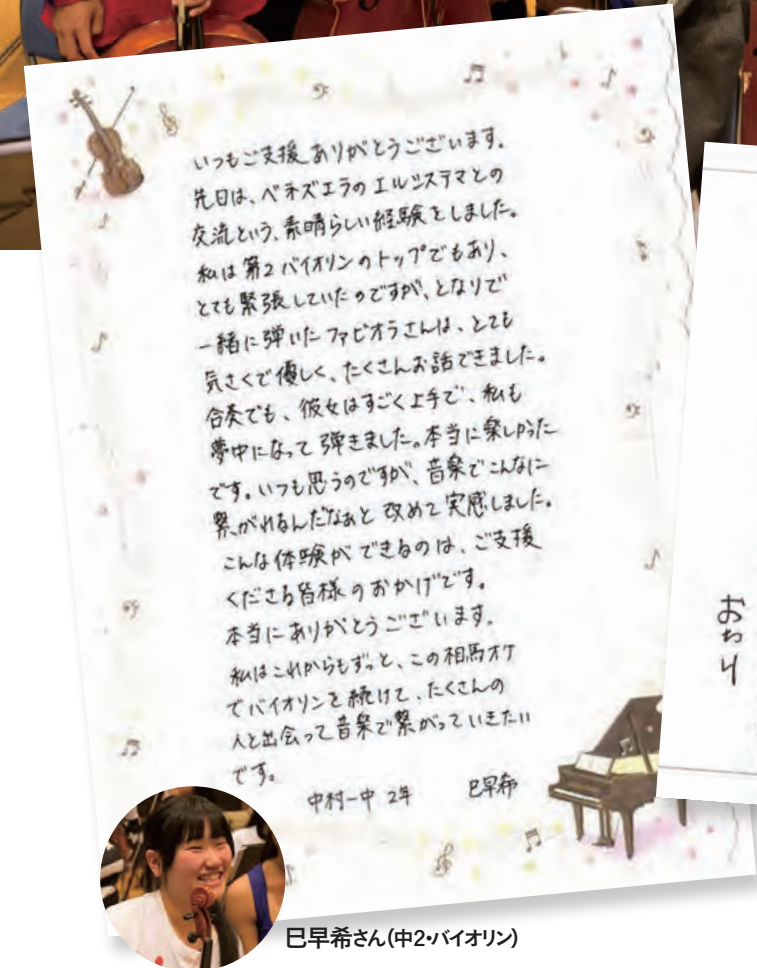 いつもご支援ありがとうございます。
先日は、ベネズエラのエルシステマとの
交流という、素晴らしい経験をしました。
私は第2バイオリンのトップでもあり、
とても緊張していたのですが、となりで
一緒に弾いたファビオラさんは、とても
気さくで優しく、たくさんお話できました。
合奏でも、彼女はすごく上手で、私も
夢中になって弾きました。本当に楽しかった
です。いつも思うのですが、音楽でこんなに
繋がれるんだなあと改めて実感しました。
こんな体験ができるのは、ご支援
くださる皆様のおかげです。
本当にありがとうございます。
私はこれからもずっと、この相馬オケ
でバイオリンを続けて、たくさんの
人と出会って音楽で繋がっていきたい
です。
中村一中 2年 巳早希
巳早希さん(中2・バイオリン)